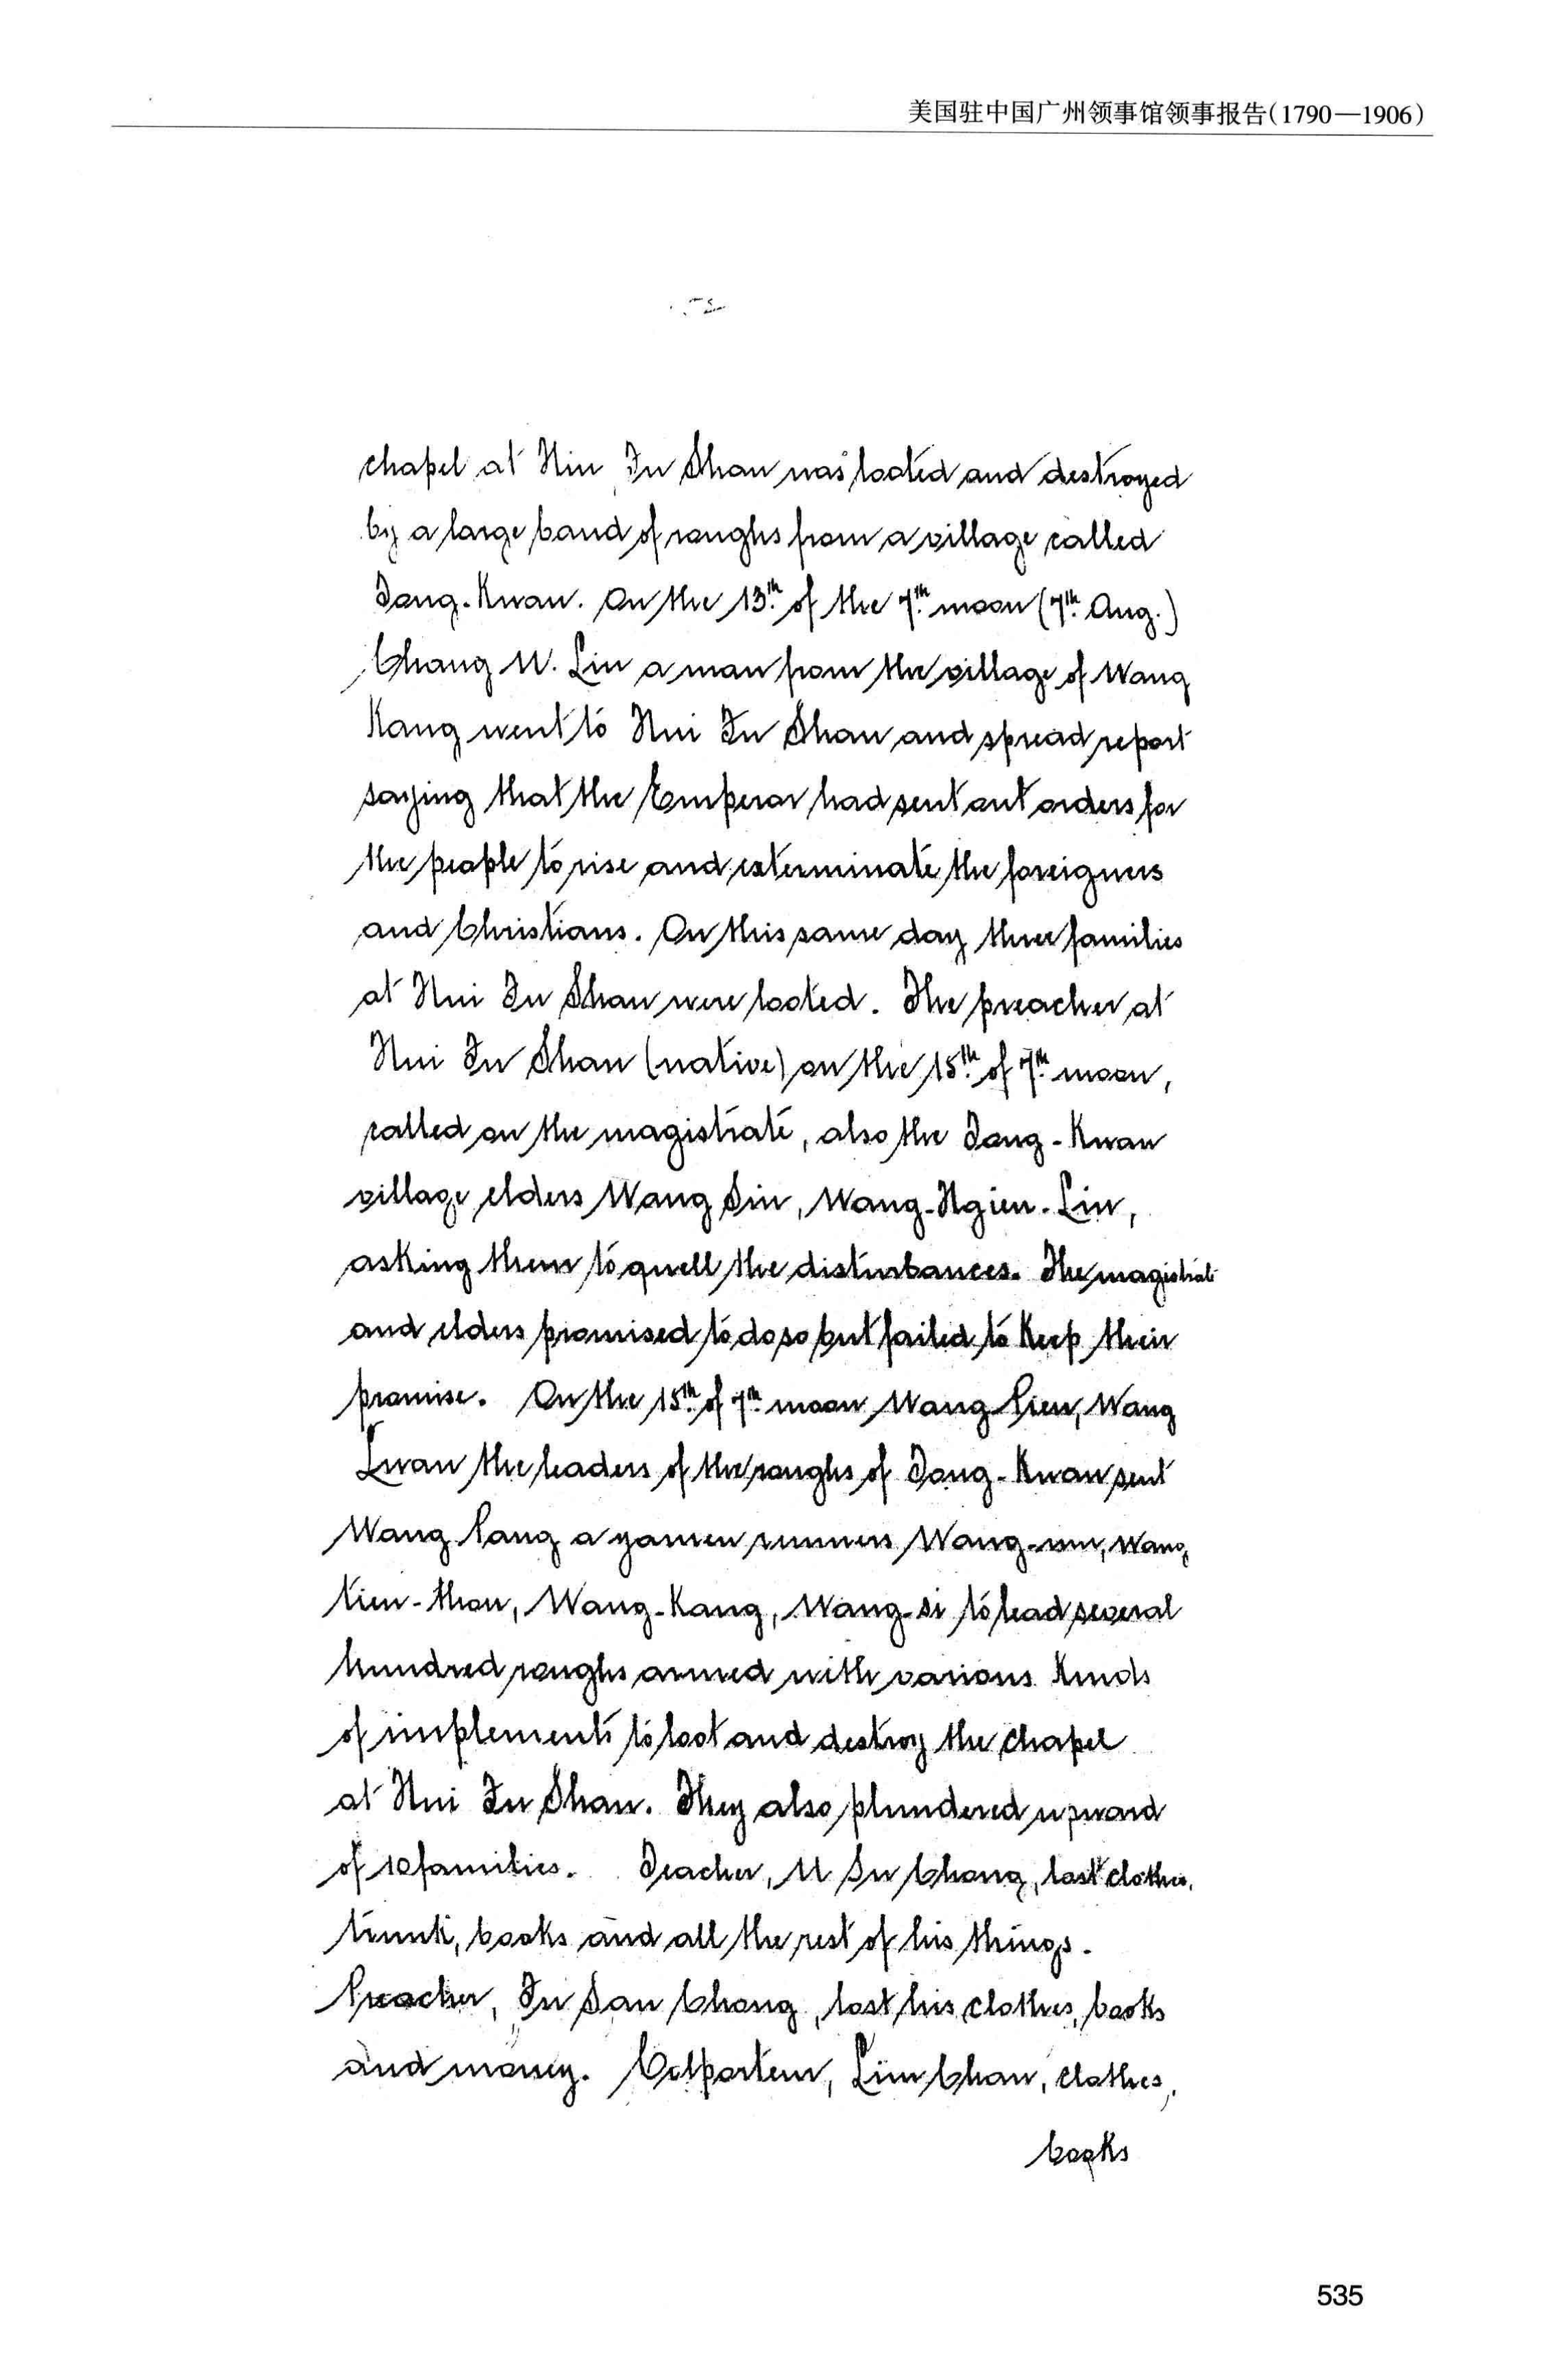 美国驻中国广州领事馆领事报告(1790—1906)
chapel at Nui Fu Shan was looted and destroyed
by a large band of roughs from a village called
Tong-Kwan. On the 13th of the 7th moon (7th Aug.)
Chang W. Lin a man from the village of Wang
Kang went to Nui Fu Shan and spread report
saying that the Emperor had sent out orders for
the people to rise and exterminate the foreigners
and Christians. On this same day three families
at Nui Fu Shan were looted. The preacher at
Nui Fu Shan (native) on the 15th of 7th moon,
called on the magistrate, also the Tong-Kwan
village elders Wang Sin, Wang-Ngien-Lin,
asking them to quell the disturbances. The magistrate
and elders promised to do so but failed to keep their
promise. On the 15th of 7th moon Wang Pien, Wang
Lwan the leaders of the roughs of Tong-Kwan sent
Wang Pang a yamen runners Wang- Wang
tien-thou, Wang-Kang, Wang-si to lead several
hundred roughs armed with various kinds
of implements to loot and destroy the chapel
at Nui Fu Shan. They also plundered upward
of 10 families. Teacher, U Su Chong, lost clothes,
trunk, books and all the rest of his things.
Preacher, Fu San Chong, lost his clothes, books
and money. Colporteur, Lim Chan, clothes,
books
535